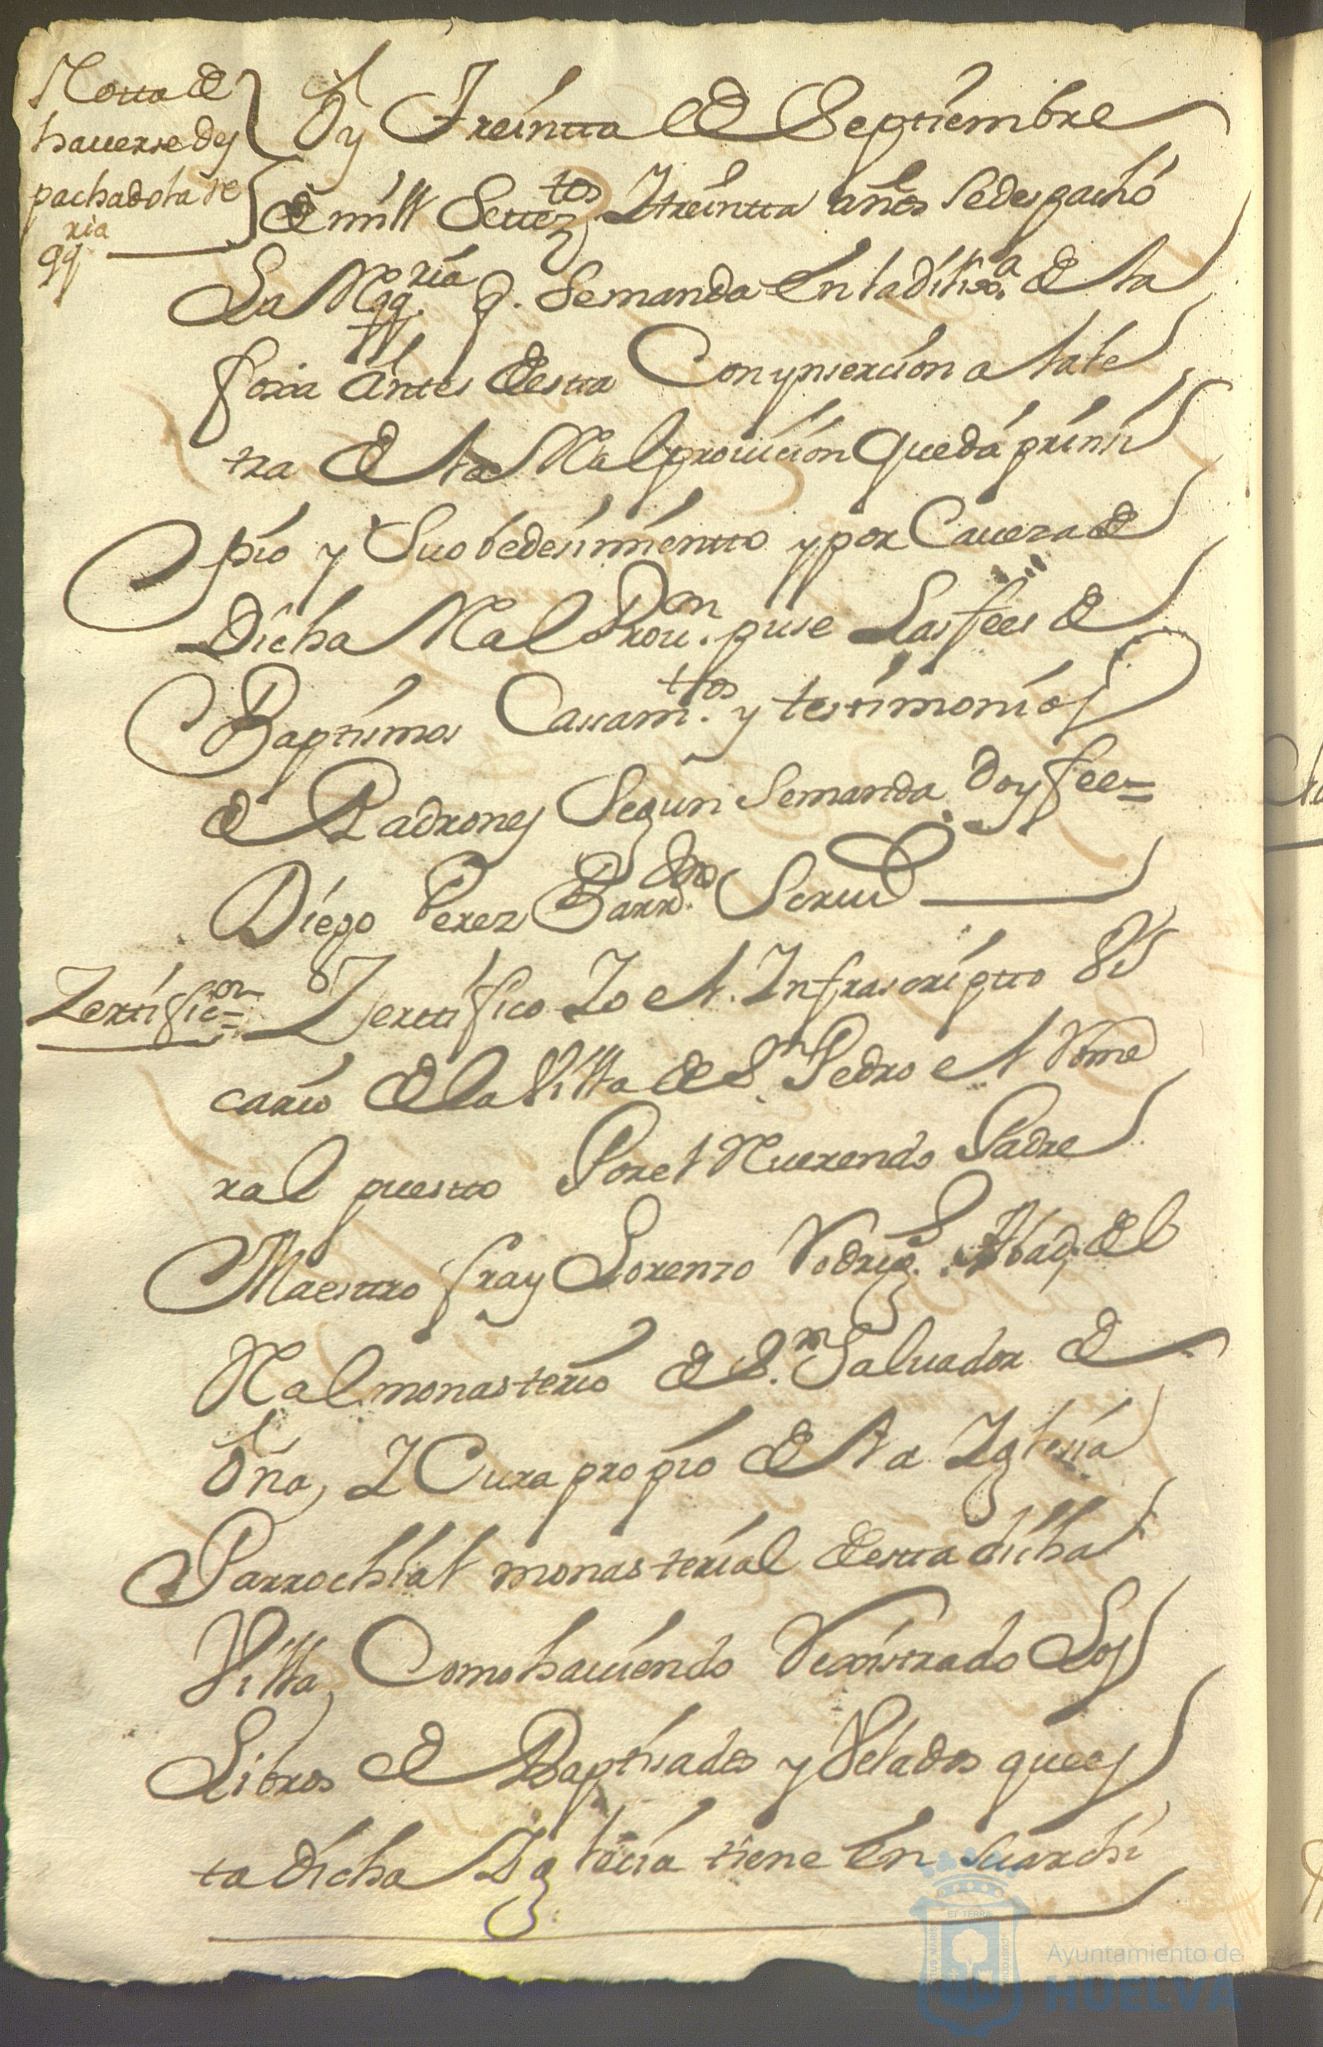 Notta de
hauerse des
pachado la re
ria
qq
Oy Treintta de Septiembre
de mill Settez.tos Y treintta años se despachó
La Rqq.ria q. se manda en la dilix.a de la
foxa antes desta Con ynserzion a la le
tra de la Real prouicion que dá prinsi
pio y Su obedesimientto y por Caueza de
dicha Real Prou.on puse Las fees de
Baptismos Casam.ttos y testimonios
de Padrones Segun se manda doy fee=
Diego Perez Barr.do Scriuo
Zertific.on=
Zerttifico Yo el Infrascriptto Vi
cario de la Villa de S.n Pedro el Nome
ral puestto Por el Ruerendo Padre
Maesttro fray Lorenzo Rodrig.s Abad del
Real monasterio de S.n Saluador de
Oña, Y Cura propio de la Yglesia
Parrochial monasterial desta dicha
Villa, Como hauiendo Rexistrado Los
Libros de Baptisados y Velados que es
ta dicha Yglesia tiene en su archi
Ayuntamiento de
HUELVA